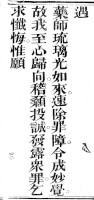 過
藥師琉璃光如來速除罪障令成妙覺
故我至心歸向稽顙投誠發露衆罪乞
求懺悔惟願